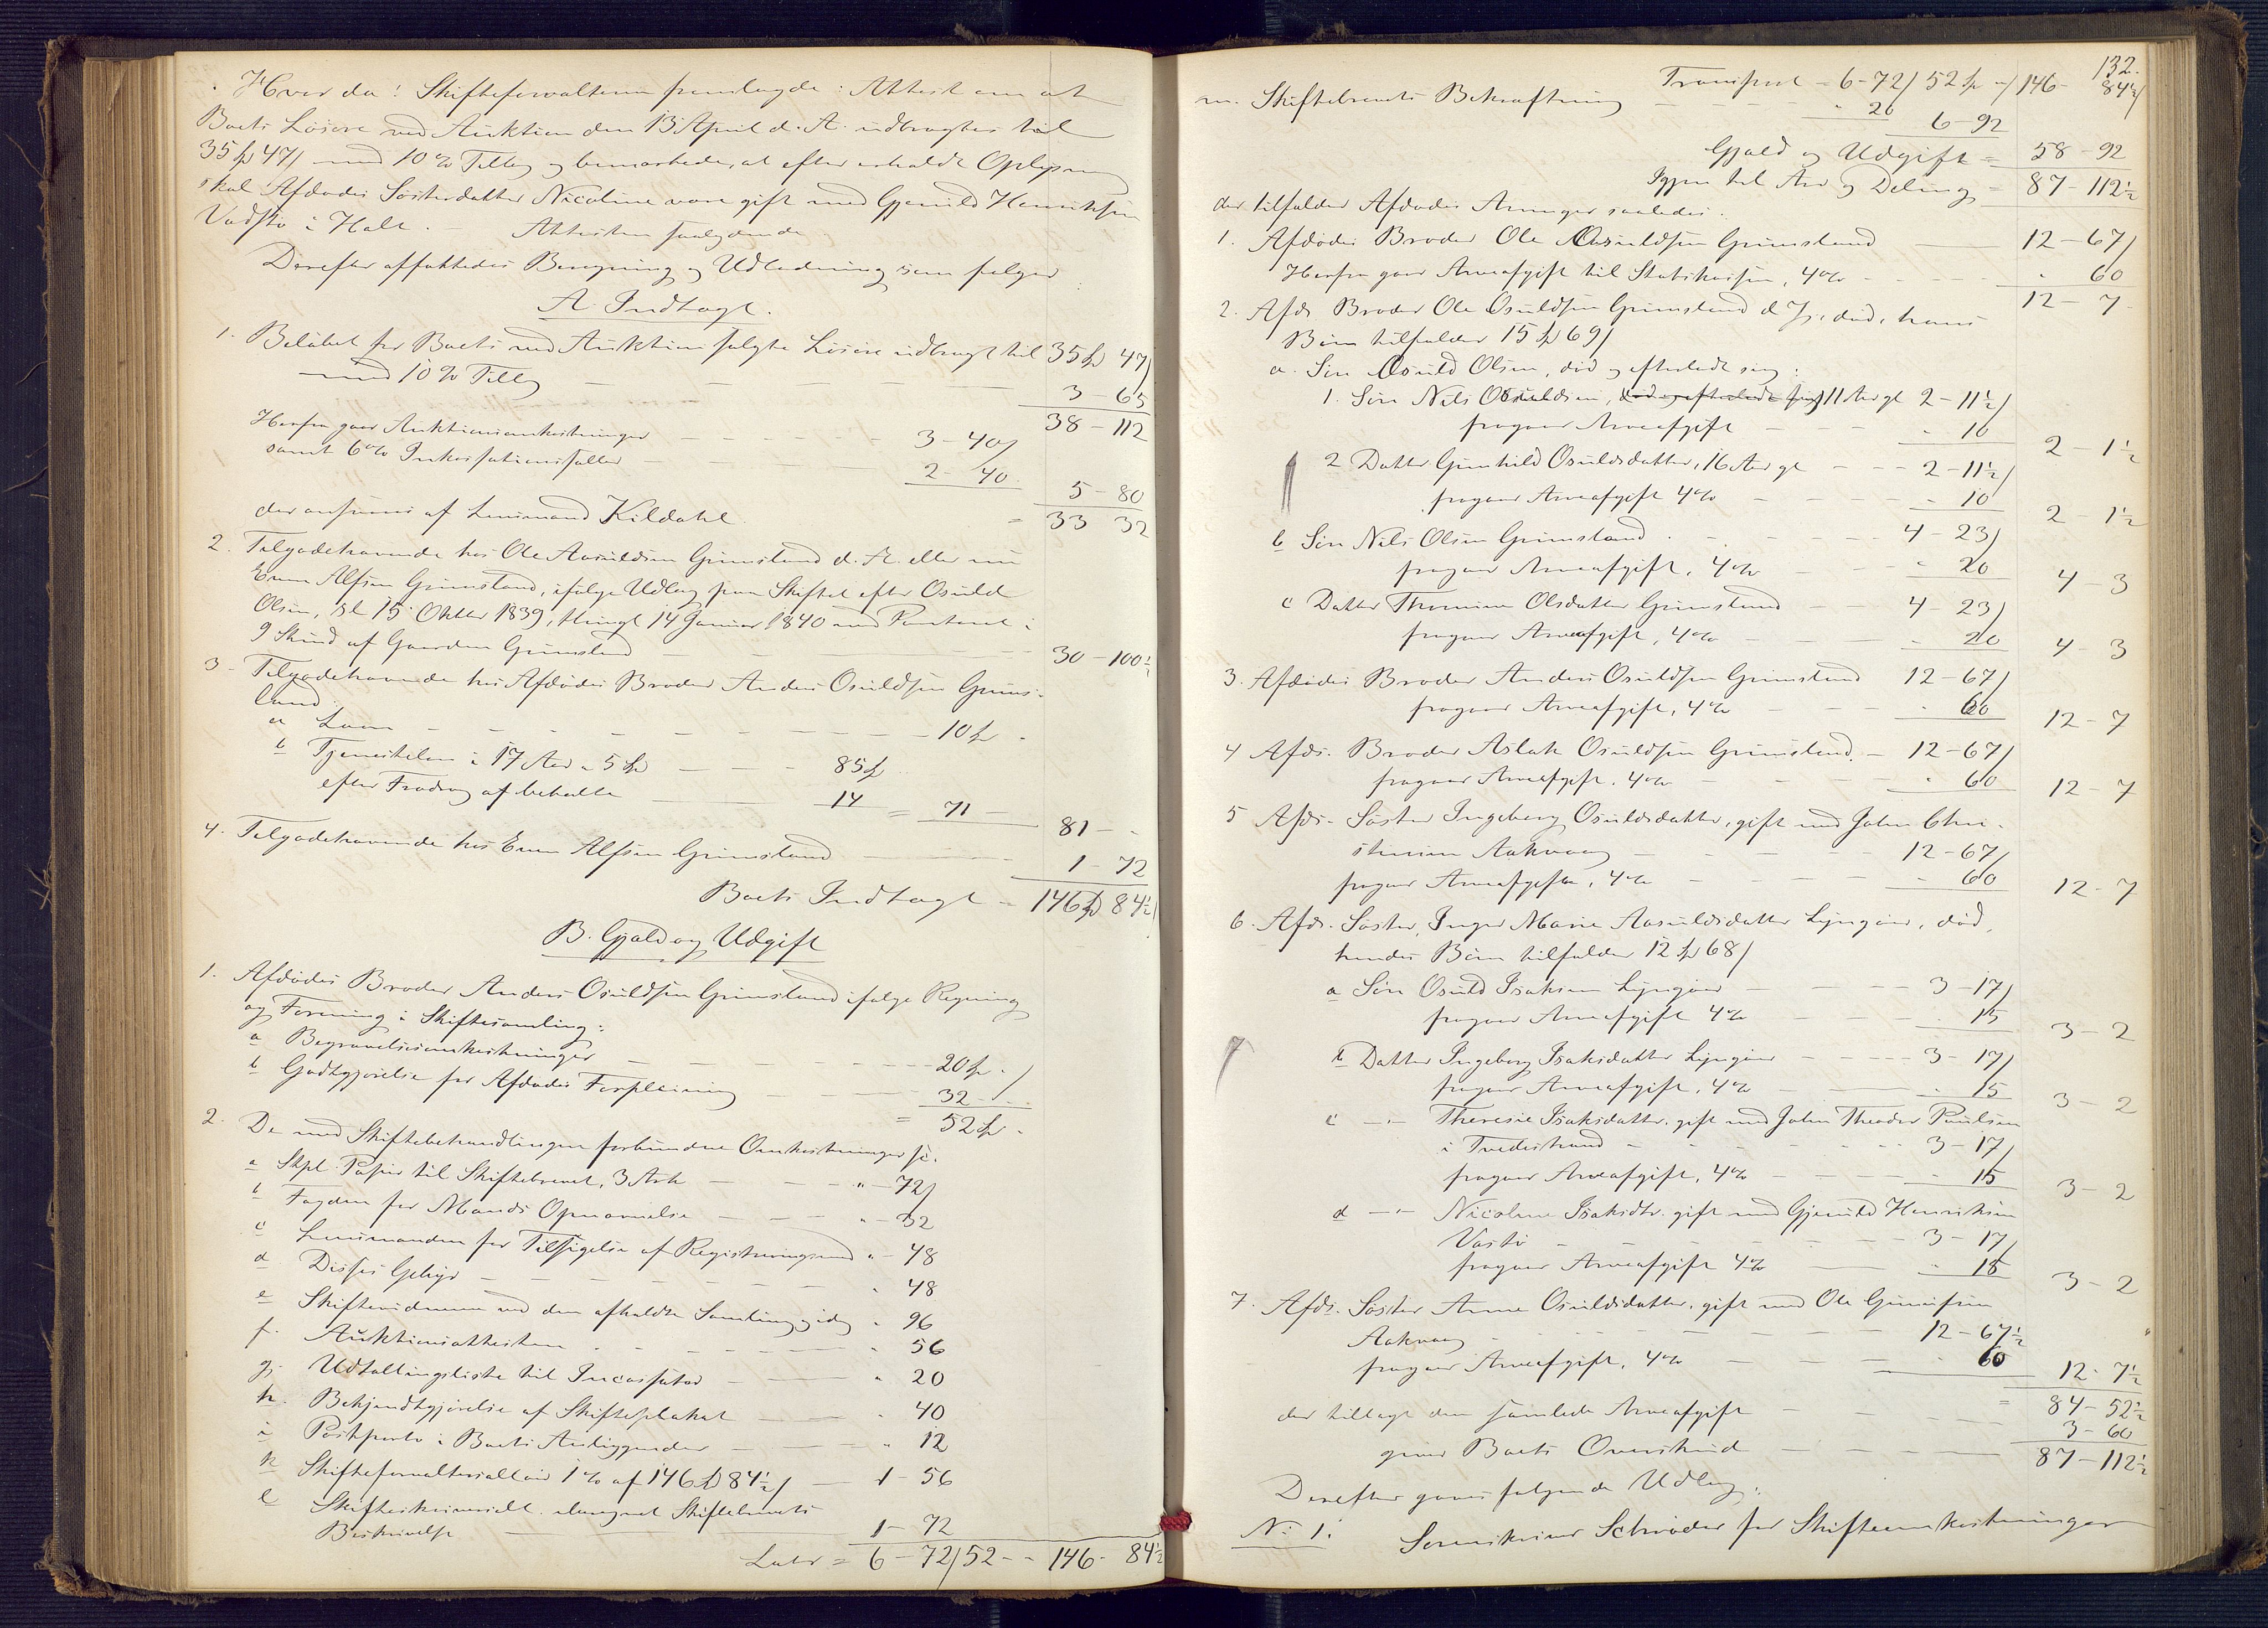 Hvorda: Skifteforvalteren fremlagde: Attest om at
Boets Løsøre ved Auktion den 13 April d. A. udbragtes til
35 Sp 47 s med 10 % Tillæg og bemærkede, at efter erholdt Oplysning
skal Afdødes Søsterdatter Nicoline være gift med Gjeruld Henriksen
Vadsto i Holt. — Attesten saalydende
Derefter affattedes Beregning og Udlodning som følger:
A Indtægt.
1. Beløbet for Boets ved Auktion solgte Løsøre udbragt til 35 Sp 47 s
med 10 % Tillæg — 3 - 65
38 - 112
Herfra gaar Auktionsomkostninger — 3 - 40 s
samt 6 % Inkassationssaller — 2 - 40
5 - 80
der ansvares af Lensmand Kildahl = 33 32
2. Tilgodehavende hos Ole Aasuldsen Grimsland d. Æ. eller nu
Even Alfsen Grimsland, ifølge Udlæg paa Skiftet efter Osuld
Olsen, dl 15 Oktbr 1839, thingl 14 Januar 1840 med Panteret i
9 Skind af Gaarden Grimsland — 30 - 100½
3 - Tilgodehavende hos Afdødes Broder Anders Osuldsen Grims-
land.
a Laan — 10 Sp -
b Tjenesteløn i 17 Aar a 5 Sp — 85 Sp
efter Fradrag af beholdt — 14 = 71 —
81 - -
4. Tilgodehavende hos Even Alfsen Grimsland — 1 - 72
Boets Indtægt = 146 Sp 84½ s
B. Gjæld og Udgift
1. Afdødes Broder Anders Osuldsen Grimsland ifølge Regning
og Forening i Skiftesamling:
a Begravelsesomkostninger — 20 Sp -
b Godtgjørelse for Afdødes Forpleining — 32 - -
= 52 Sp -
2. De med Skiftebehandlingen forbundne Omkostninger s:
a Stpl. Papir til Skiftebrevet, 3 Ark — " - 72 s
b Fogden for Mænds Opnævnelse — " - 32
c Lensmanden for Tilsigelse af Registreringsmænd " - 48
d Disses Gebyr — " 48
e Skiftevidnerne ved den afholdte Samling " 96
f. Auktionsattesten — " 56
g. Udtællingsliste til Incassator — " 20
h. Bekjendtgjørelse af Skifteplakat — " 40
i Postporto i Boets Anliggender — " 12
k Skifteforvaltersallær 1 % af 146 Sp 84½ s — 1 - 56
l Skifteskriversalt. iberegnet Skiftebrevets
Beskrivelse — 1 - 72
Latr = 6 - 72 s 52 - - 146 - 84½
132.
Transport = 6 - 72 s 52 Sp - s 146 - 84½ s
m. Skiftebrevets Bekræftning — " 20
6 - 92
Gjæld og Udgift = 58 - 92
Igjen til Arv og Deling = 87 - 112½
der tilfalder Afdødes Arvinger saaledes:
1. Afdødes Broder Ole Osuldsen Grimsland — 12 - 67 s
Herfra gaar Arveafgift til Statskassen, 4 % - " 60
12 - 7
2. Afds Broder Ole Osuldsen Grimsland d. Y., død, hans
Børn tilfalder 15 Sp 69 s
a. Søn Osuld Olsen, død og efterladt sig:
1. Søn Nils Osuldsen, død og efterladt sig 11 Aar gl 2 - 11½ s
fragaar Arveafgift — " 10
2 - 1½
2 Datter Gunhild Osuldsdatter, 16 Aar gl - - 2 - 11½ s
fragaar Arveafgift 4 % — " 10
2 - 1½
b Søn Nils Olsen Grimsland — 4 - 23 s
fragaar Arveafgift, 4 % — " 20
4 - 3
c Datter Thomine Olsdatter Grimsland — 4 - 23 s
fragaar Arveafgift, 4 % — " 20
4 - 3
3. Afdødes Broder Anders Osuldsen Grimsland 12 - 67 s
fragaar Arveafgift, 4 % — " 60
12 - 7
4 Afds. Broder Aslak Osuldsen Grimsland. - 12 - 67 s
fragaar Arveafgift. 4 % — " 60
12 - 7
5 Afds. Søster Ingeborg Osuldsdatter, gift med John Chri-
stiansen Aakvaag — 12 - 67 s
fragaar Arveafgift, 4 % — " 60
12 - 7
6. Afds. Søster, Inger Marie Aasuldsdatter Lyngøer, død,
hendes Børn tilfalder 12 Sp 68 s
a Søn Osuld Isaksen Lyngøer — 3 - 17 s
fragaar Arveafgift 4 % — " 15
3 - 2
b Datter Ingeborg Isaksdatter Lyngøer — 3 - 17 s
fragaar Arveafgift, 4 % — " 15
3 - 2
c — " — Theresie Isaksdatter, gift med John Theodor Paulsen
i Tvedestrand — 3 - 17 s
fragaar Arveafgift, 4 % — " 15
3 - 2
d — " — Nicoline Isaksdtr. gift med Gjeruld Henriksen
Vasto — 3 - 17 s
fragaar Arveafgift 4 % — " 15
3 - 2
7. Afds. Søster Anne Osuldsdatter, gift med Ole Gunnifsen
Aakvaag — 12 - 67½
fragaar Arveafgift, 4 % — " 60
12 - 7½
= 84 - 52½
der tillagt den samlede Arveafgift — 3 - 60
giver Boets Overskud — 87 - 112½
Derefter gaves følgende Udlæg:
No 1. Sorenskriver Schrøder for Skifteomkostninger